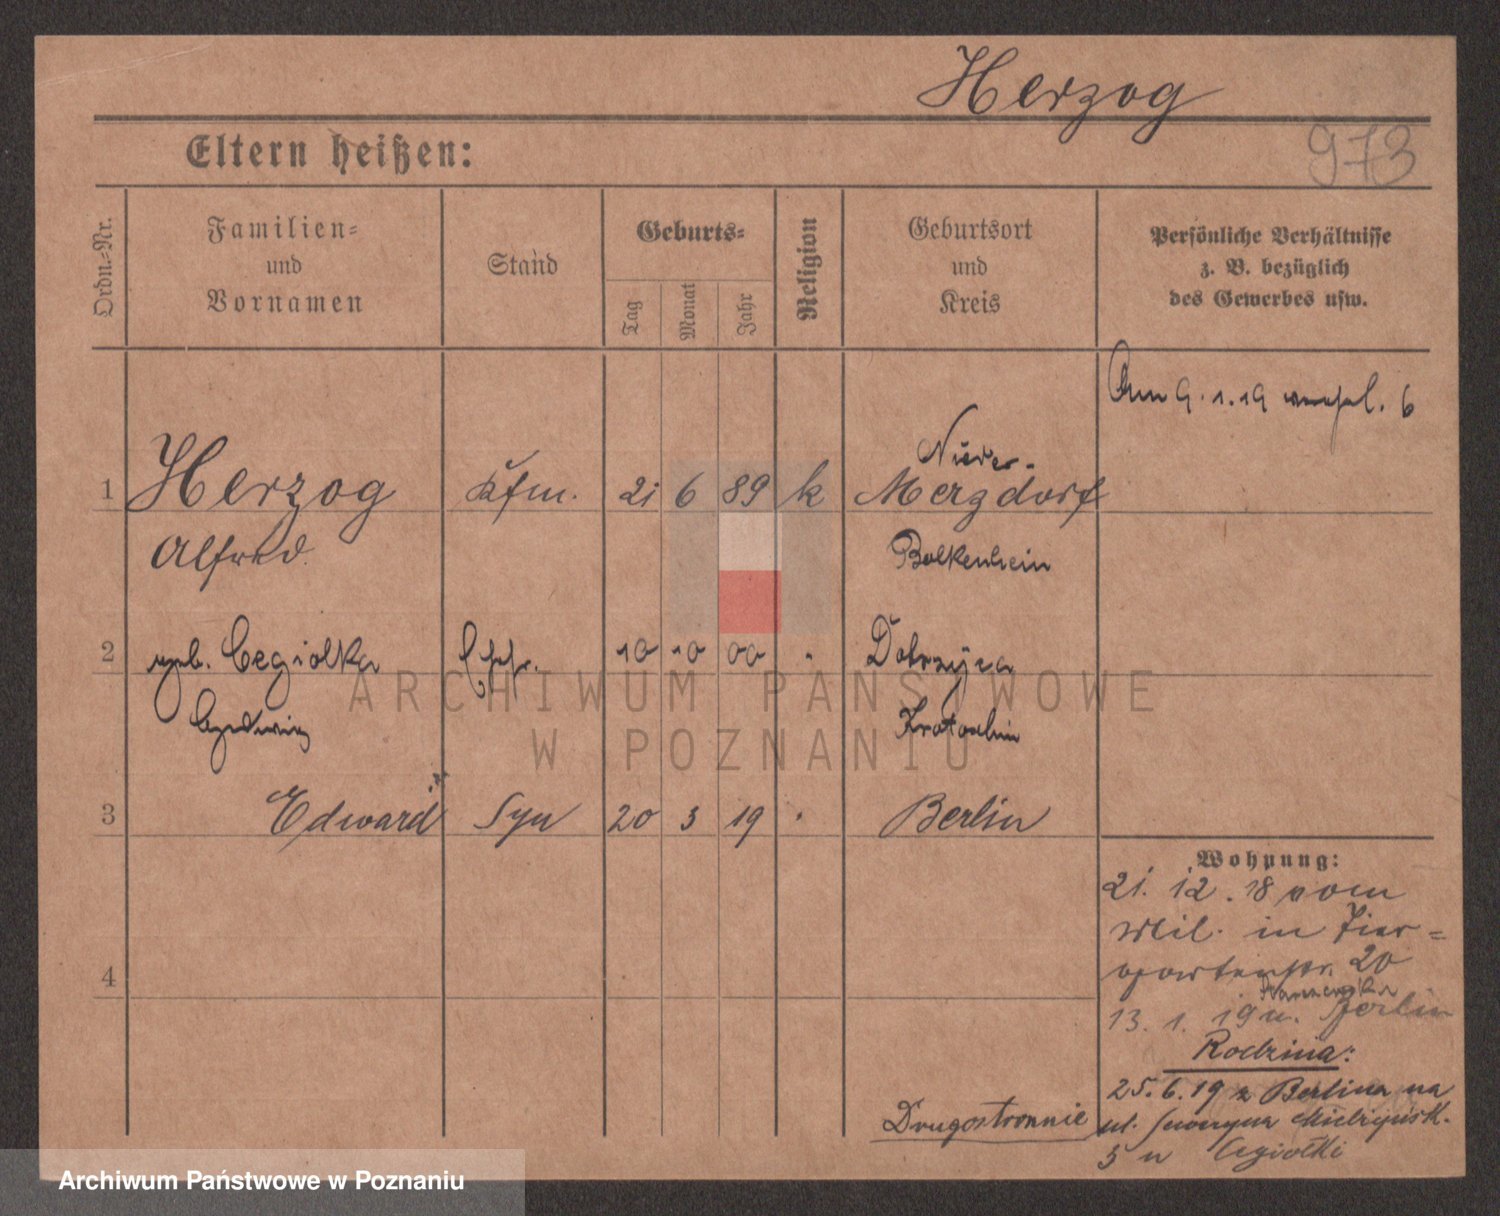 Herzog
973
Eltern heißen:
Ordn.-Nr.
Familien-
und
Vornamen
Stand
Geburts-
Tag
Monat
Jahr
Religion
Geburtsort
und
Kreis
Persönliche Verhältnisse
z. B. bezüglich
des Gewerbes usw.
Am 9.1.19 6
1 Herzog Kfm. 21 6 89 k Nieder-
Mergdorf
Alfred Bolkenhein
2 geb. Cegiolka Ehefr. 10 10 00 Dobrzyca
Krotoschin
3 Edward Syn 20 3 19 Berlin
4
Wohnung:
21. 12. 18 vom
Mil. in Tier=
gartenstr. 20
13. 1. 19 n. Berlin
Rodzina:
25.6.19 z Berlina na
ul. Seweryna Mielżyńsk.
3 u Cegiołki
Drugostronnie
ARCHIWUM PAŃSTWOWE
W POZNANIU
Archiwum Państwowe w Poznaniu